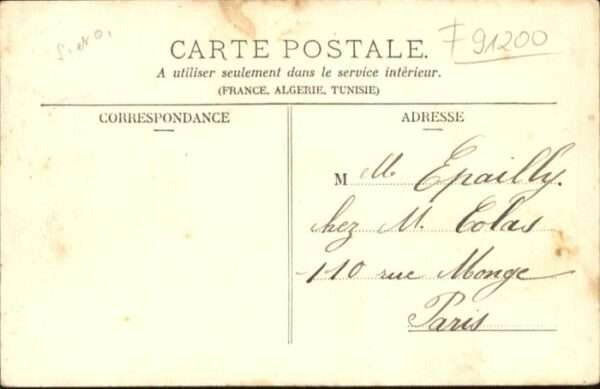 S. et O.
F 91200
CARTE POSTALE.
A utiliser seulement dans le service intérieur.
(FRANCE, ALGERIE, TUNISIE)
CORRESPONDANCE
ADRESSE
M M. Epailly.
chez M. Colas
110 rue Monge
Paris